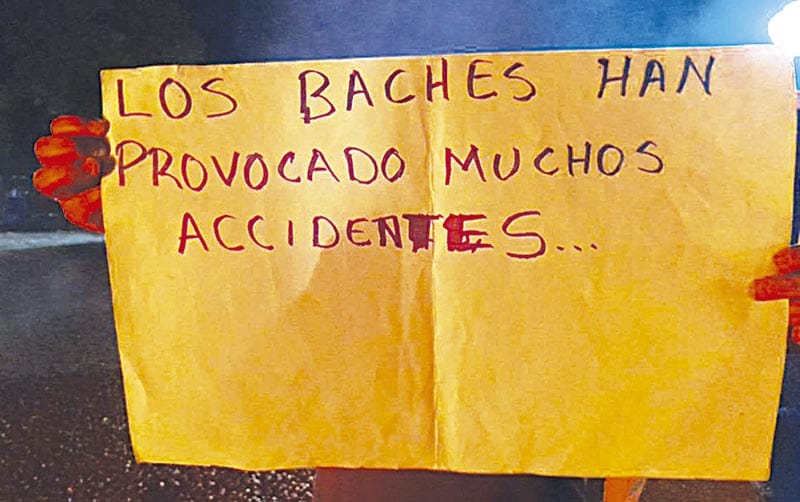 LOS BACHES HAN
PROVOCADO MUCHOS
ACCIDENTES...